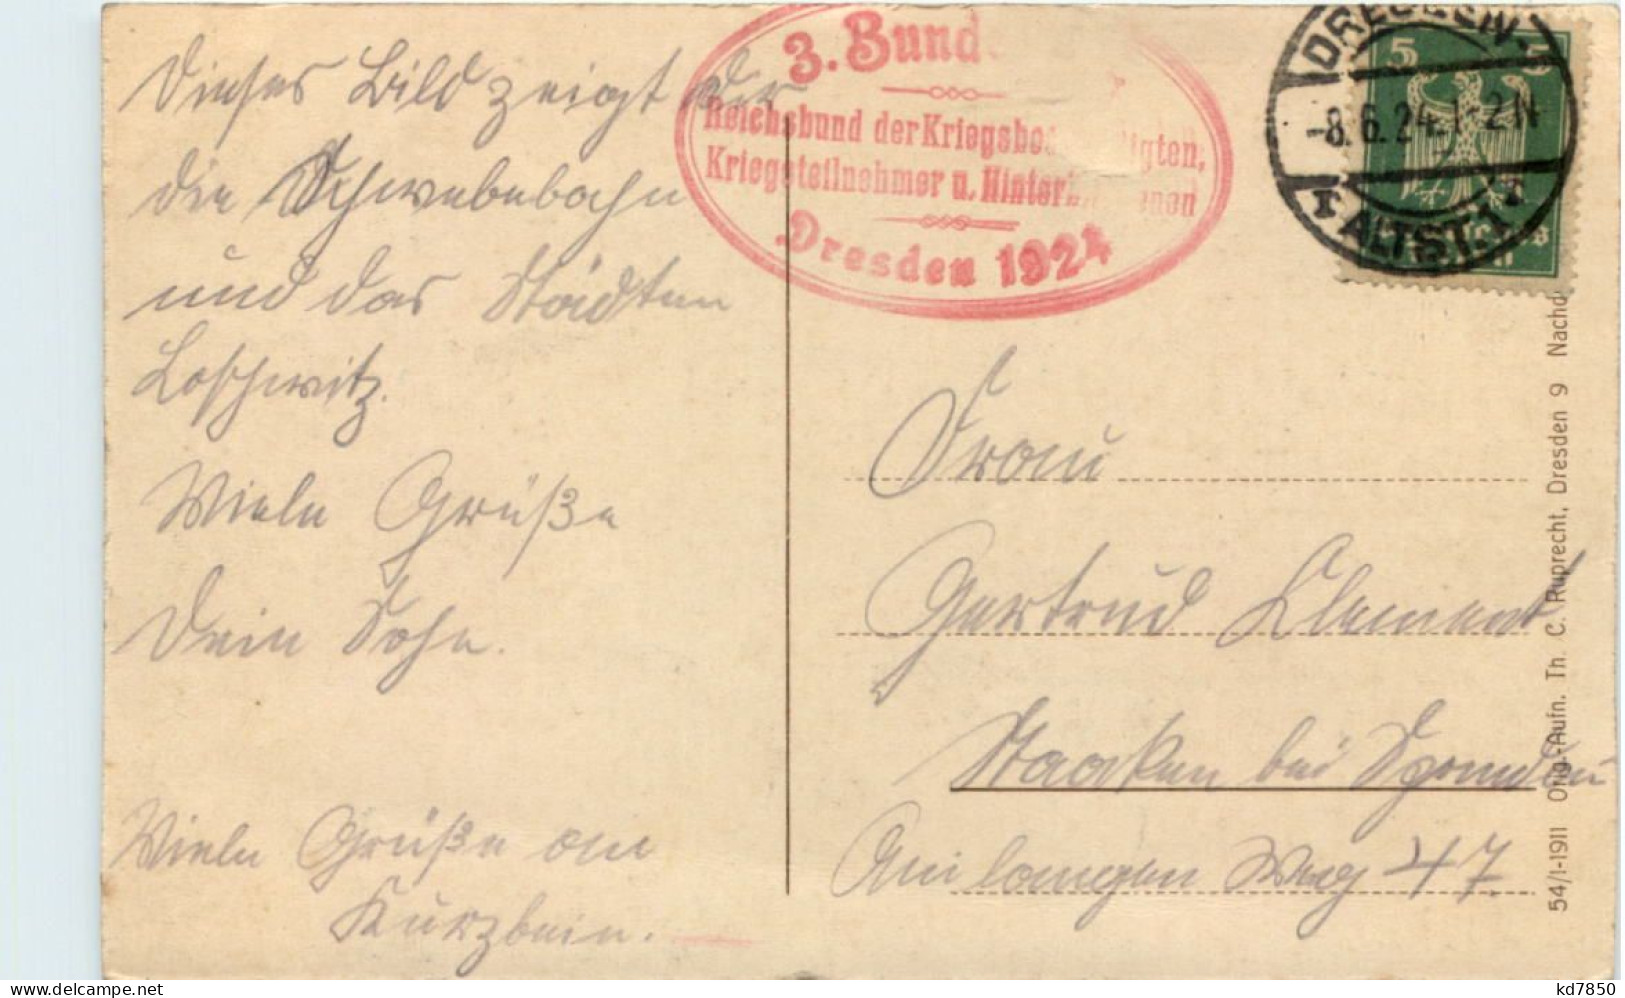 Dieses Bild zeigt der
die Schwebebahn
und das Städten
Loschwitz.
Viele Grüße
Dein Sohn.
Viele Grüße an
Kurzbein.
3. Bund
Reichsbund der Kriegsbes igten,
Kriegsteilnehmer u. Hinter enen
Dresden 1924
DRESDEN-
-8.6.24.1-2N
ALTST.1
5 5
Frau
Gertrud Clement
Staaken bei Spandau
Am langen Weg 47.
54/1-1911 Orig.-Aufn. Th. C. Ruprecht, Dresden 9 Nachd
delcampe.net
kd7850